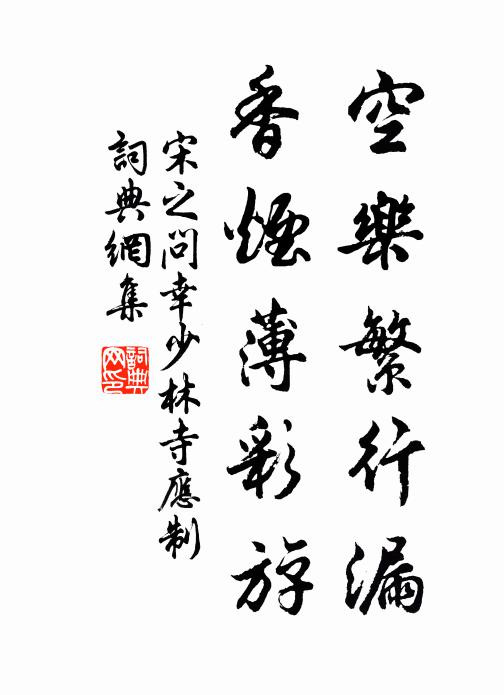 空樂繁行漏
香煙薄彩斿
宋之問幸少林寺應制
詞典網集
詞典網印